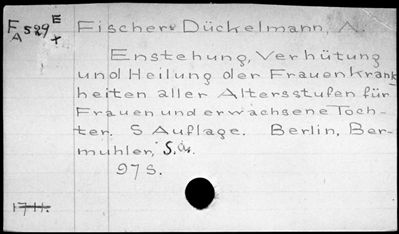 FA529 E+ Fischer-Dückelmann, A.
Enstehung, Verhütung
und Heilung der Frauenkrank
heiten aller Altersstufen für
Frauen und erwachsene Töch-
ter. 5 Auflage. Berlin, Ber-
mühler, S.a.
97 S.